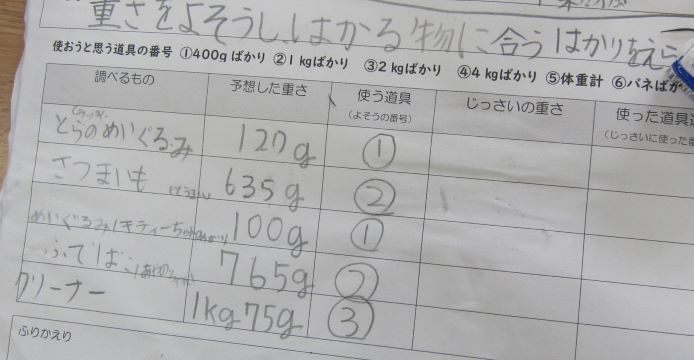 重さをよそうし、はかる物に合うはかりをえら
使おうと思う道具の番号 ①400gばかり ②1kgばかり ③2kgばかり ④4kgばかり ⑤体重計 ⑥バネばか
調べるもの 予想した重さ 使う道具 じっさいの重さ 使った道具
(よそうの番号) (じっさいに使った番
とらのめいぐるみ 120g ①
さつまいも 635g ②
めいぐるみ 100g ①
ふでばこ 765g ②
クリーナー 1kg75g ③
ふりかえり